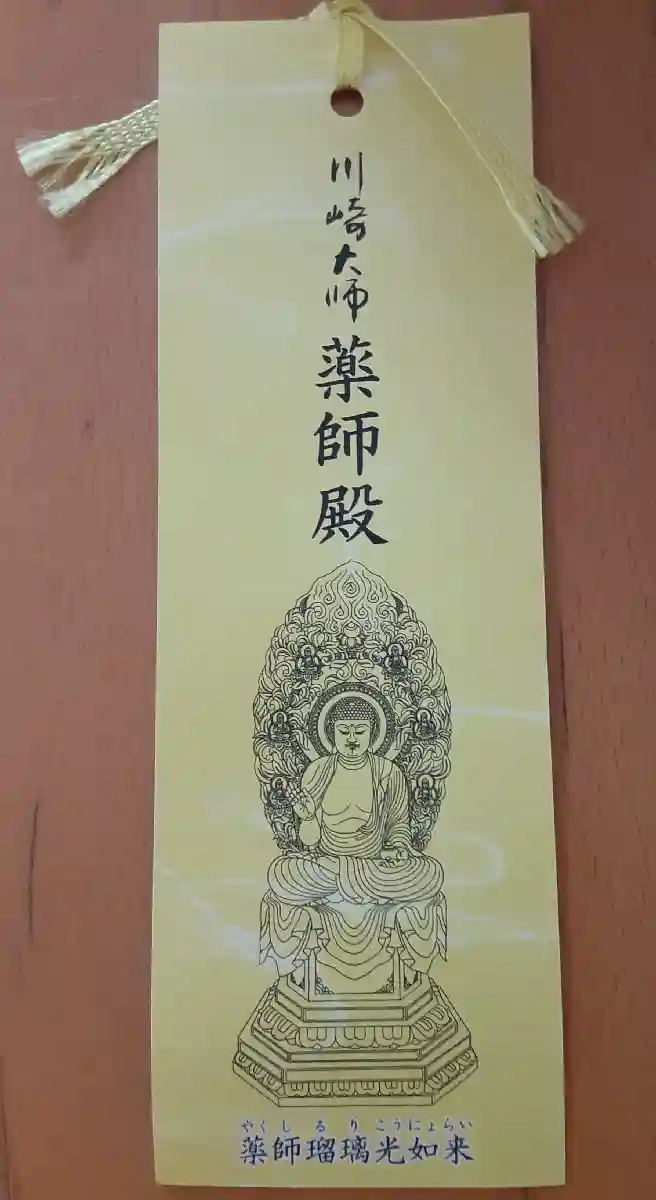 川崎大師 薬師殿
やくしるりこうにょらい
薬師瑠璃光如来